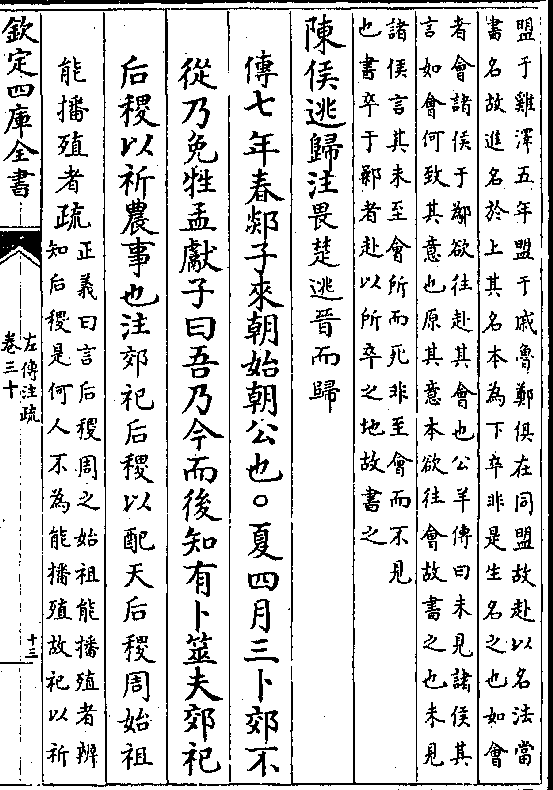 盟于雞澤五年盟于戚魯鄭俱在同盟故赴以名法當
書名故進名於上其名本為下卒非是生名之也如會
者會諸侯于鄬欲往赴其會也公羊傳曰未見諸侯其
言如會何致其意也原其意本欲往會故書之也未見
諸侯言其未至會所而死非至會而不見
也書卒于鄵者赴以所卒之地故書之
陳侯逃歸注畏楚逃晉而歸
傳七年春郯子來朝始朝公也○夏四月三卜郊不
從乃免牲孟獻子曰吾乃今而後知有卜筮夫郊祀
后稷以祈農事也注郊祀后稷以配天后稷周始祖
能播殖者疏
正義曰言后稷周之始祖能播殖者辨
知后稷是何人不為能播殖故祀以祈
欽定四庫全書
左傳注疏
卷三十
十三